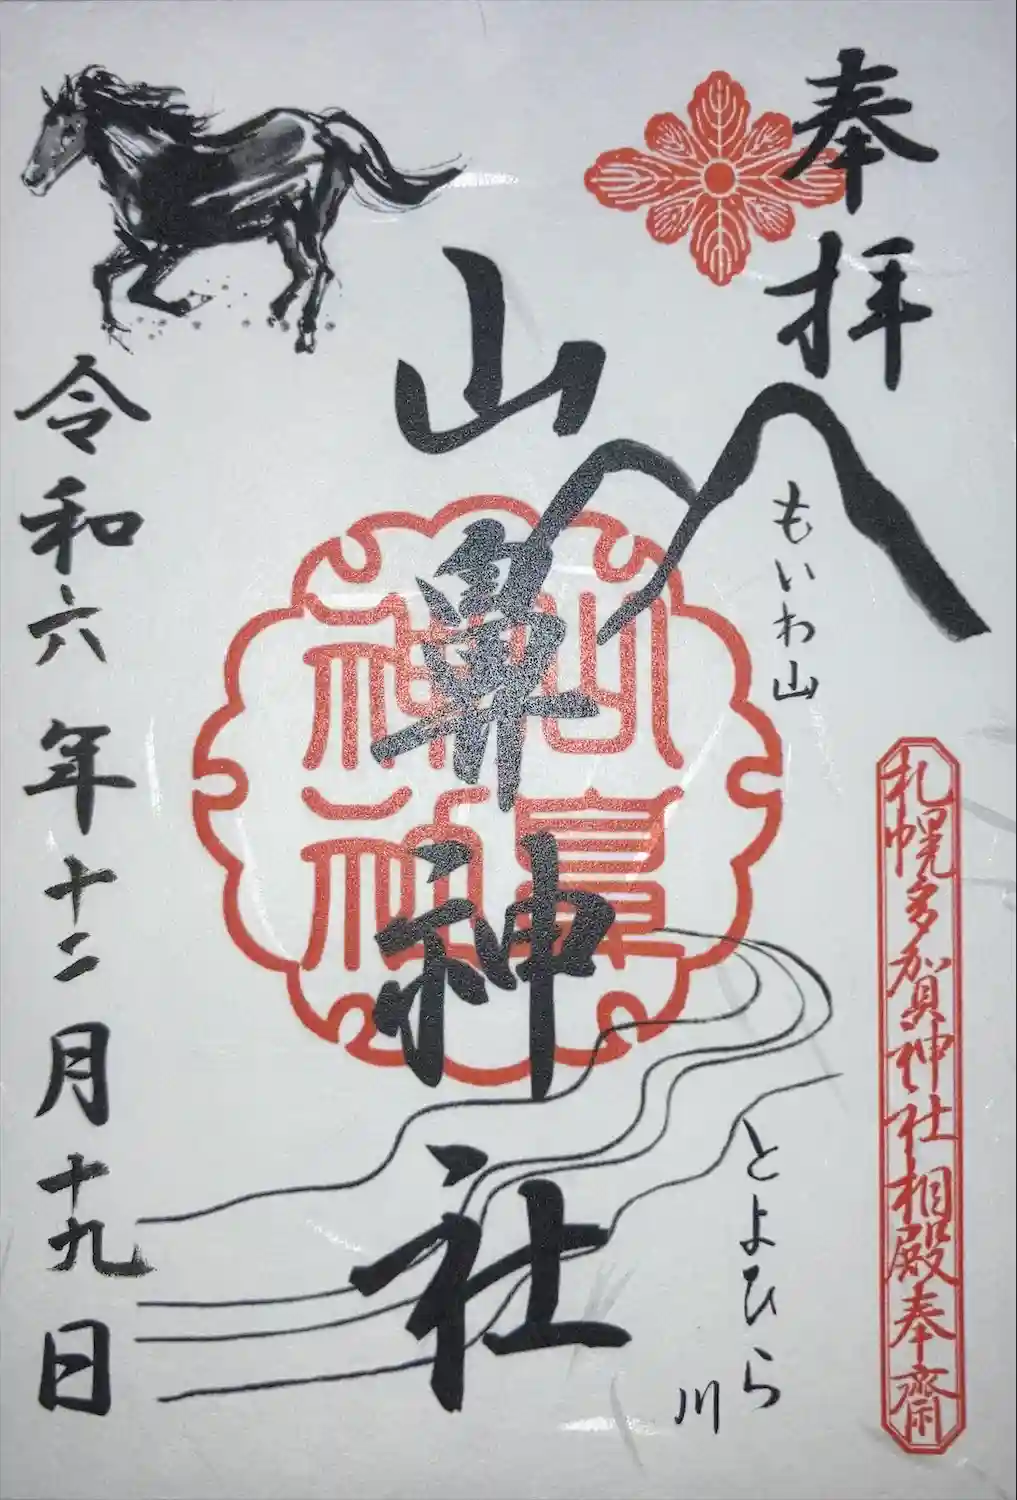 奉拝
もいわ山
札幌多賀神社相殿奉斎
とよひら川
山鼻神社
山鼻神社
令和六年十二月十九日